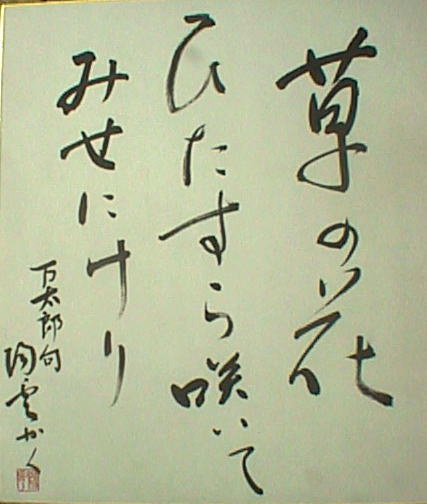 草の花
ひたすら咲いて
みせにけり
万太郎句
陶雲かく